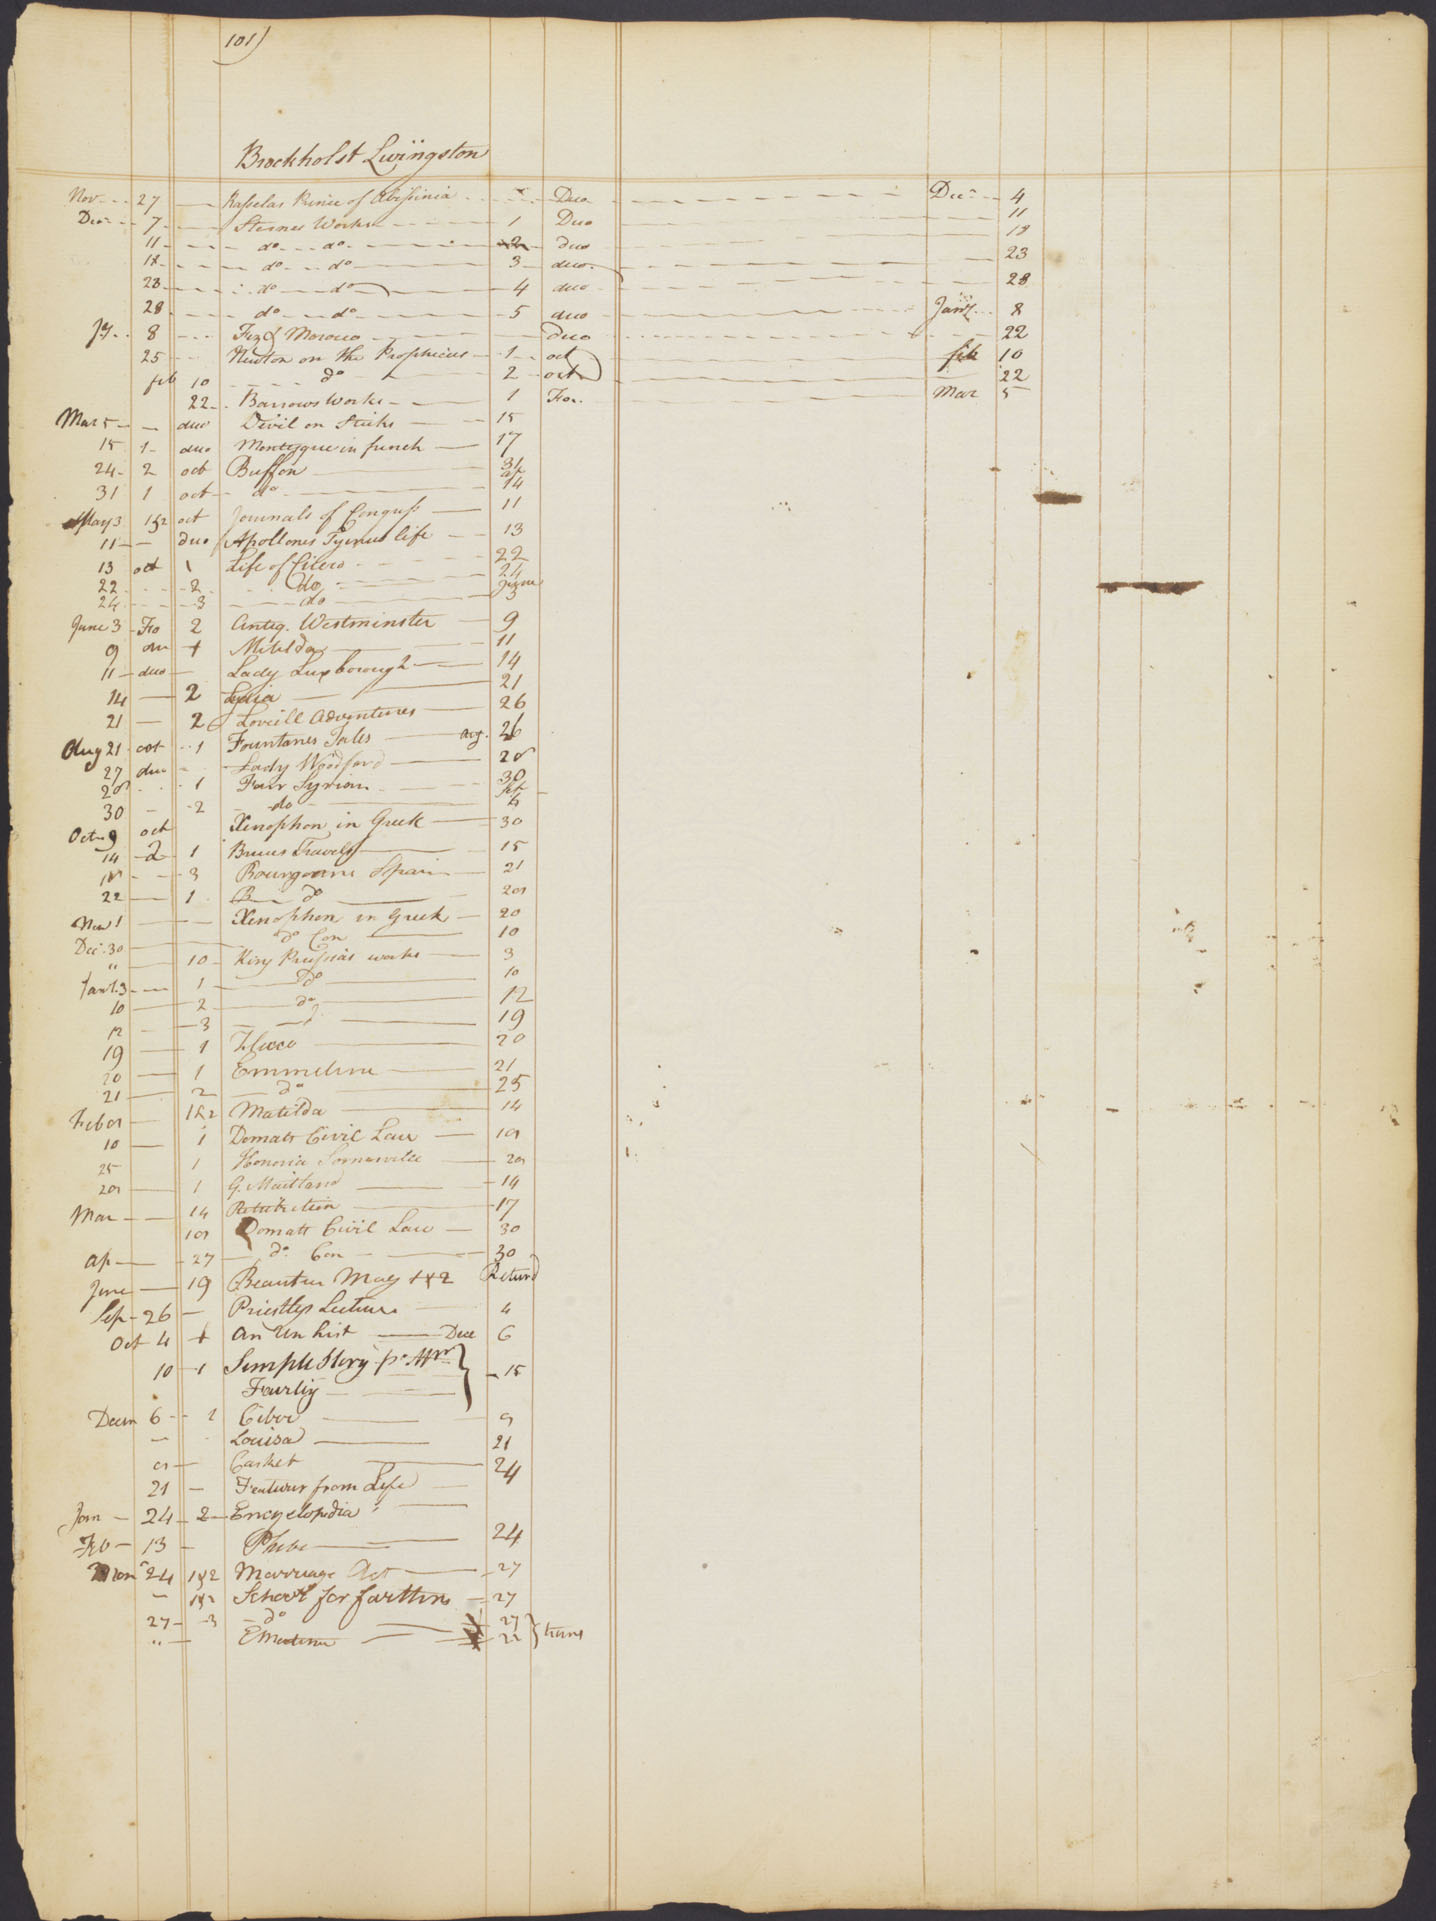 101)
Brockholst Livingston
Nov 27 Rasselas Prince of Abissinia Duo Dec 4
Decr 7 Sternes Works 1 Duo 11
11 do do 2 duo 18
18 do do 3 duo 23
23 do do 4 duo 28
28 do do 5 duo Jany 8
Jy 8 Fez & Morocco Duo 22
25 Newton on the Prophicies 1 oct feb 10
feb 10 do 2 octo 22
22 Barrows Works 1 Fo. Mar 5
Mar 5 duo Devil on Sticks 15
15 1 duo Montesque in french 17
24 2 oct Buffon 31
31 1 oct do ap 14
May 3 1&2 oct Journals of Congress 11
11 duo Apollones Tyenus life 13
13 oct 1 Life of Cicero 22
22 2 do 24
24 3 do June 3
June 3 Fo 2 Antiq. Westminster 9
9 1 Matilda 11
11 duo Lady Luxborough 14
14 2 Lydia 21
21 2 Loveill Adventures 26
Aug 21 oct 1 Fountanes Tales Aug. 26
27 duo Lady Woodford 28
28 1 Fair Syrian 30
30 2 do Sep 4
Oct 9 oct Xenophon in Greek 30
14 2 1 Bruces Travels 15
18 3 Bourgoanne Spain 21
22 1 B do 28
Nov 1 Xenophon in Greek 20
Dec. 30 do Con 10
" 10 King Prussias works 3
Jany. 3 1 do 10
10 2 do 12
12 3 19
19 1 Zeluco 20
20 1 Emmeline 21
21 2 do 25
Feb 8 1&2 Matilda 14
10 1 Domats Civil Law 18
25 1 Honoria Somerville 28
28 1 G. Maitland 14
Mar 14 Retribution 17
18 Domats Civil Law 30
Ap 27 do Con 30
June 19 Beauties Mag 1&2 Returd
Sep 26 Priestleys Lectures 4
Oct 4 1 An Un hist Dece 6
10 1 Simple Story 15
Fairley
Decm 6 1 9
Louisa 21
8 Casket 24
21 Features from Life
Jan 24 2 Encyclopedia
Feb 13 Phebe 24
24 1&2 Marriage Act 27
1&2 School for farthers 27
27 3 do 27
" 22